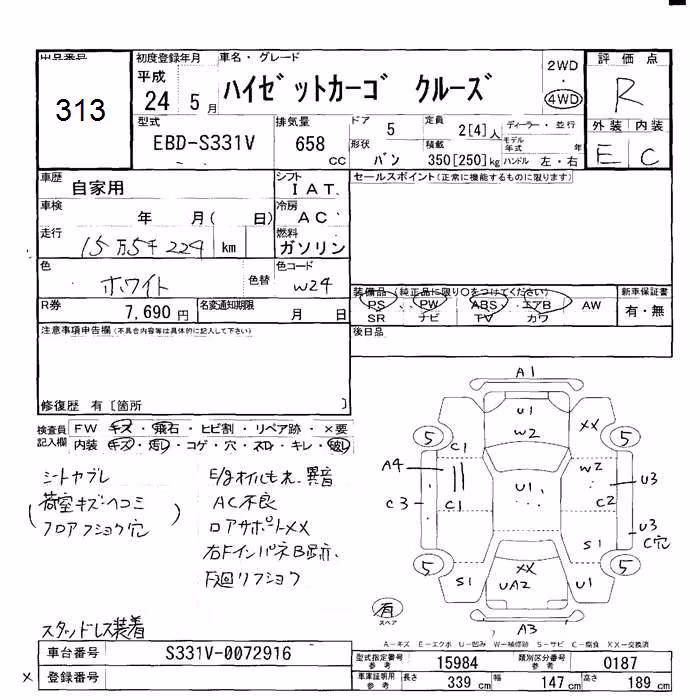 出品番号
313
初度登録年月
平成
24 5月
車名・グレード
ハイゼットカーゴ クルーズ
2WD
・
4WD
評価点
R
型式
EBD-S331V
排気量
658
cc
ドア
5
定員
2[4]人
ディーラー・並行
形状
バン
積載
350[250]kg
モデル年式 年
ハンドル 左・右
外装 内装
E C
車歴
自家用
シフト
IAT
セールスポイント(正常に機能するものに限ります)
車検
年 月( 日)
冷房
AC
走行
15万5千224 km
燃料
ガソリン
色
ホワイト
色替
色コード
W24
装備品 (純正品に限り○をつけてください)
PS PW ABS エアB AW
SR ナビ TV カワ
新車保証書
有・無
R券
7,690円
名変通知期限
月 日
後日品
注意事項申告欄(不具合内容等は具体的に記入して下さい)
修復歴 有[箇所 ]
検査員記入欄
FW キズ・飛石・ヒビ割・リペア跡・×要
内装 キズ・汚レ・コゲ・穴・スレ・キレ・破レ
シートヤブレ
荷室キズ・ヘコミ
フロアフショク穴
E/gオイルもれ、異音
AC不良
ロアサポートXX
右Fインパネ
下廻リフショク
スタッドレス装着
A1
U1
W2
XX
5
5
C1
A4
C3
C1
U1
W2
U3
C2
U3
C穴
S1
5
5
S1
XX
UA2
U1
有
スペア
A3
A-キズ E-エクボ U-凹み W-補修跡 S-サビ C-腐食 XX-交換済
車台番号
S331V-0072916
× 登録番号
型式指定番号
参考
15984
類別区分番号
参考
0187
車庫証明用
参考
長さ 339 cm
幅 147 cm
高さ 189 cm